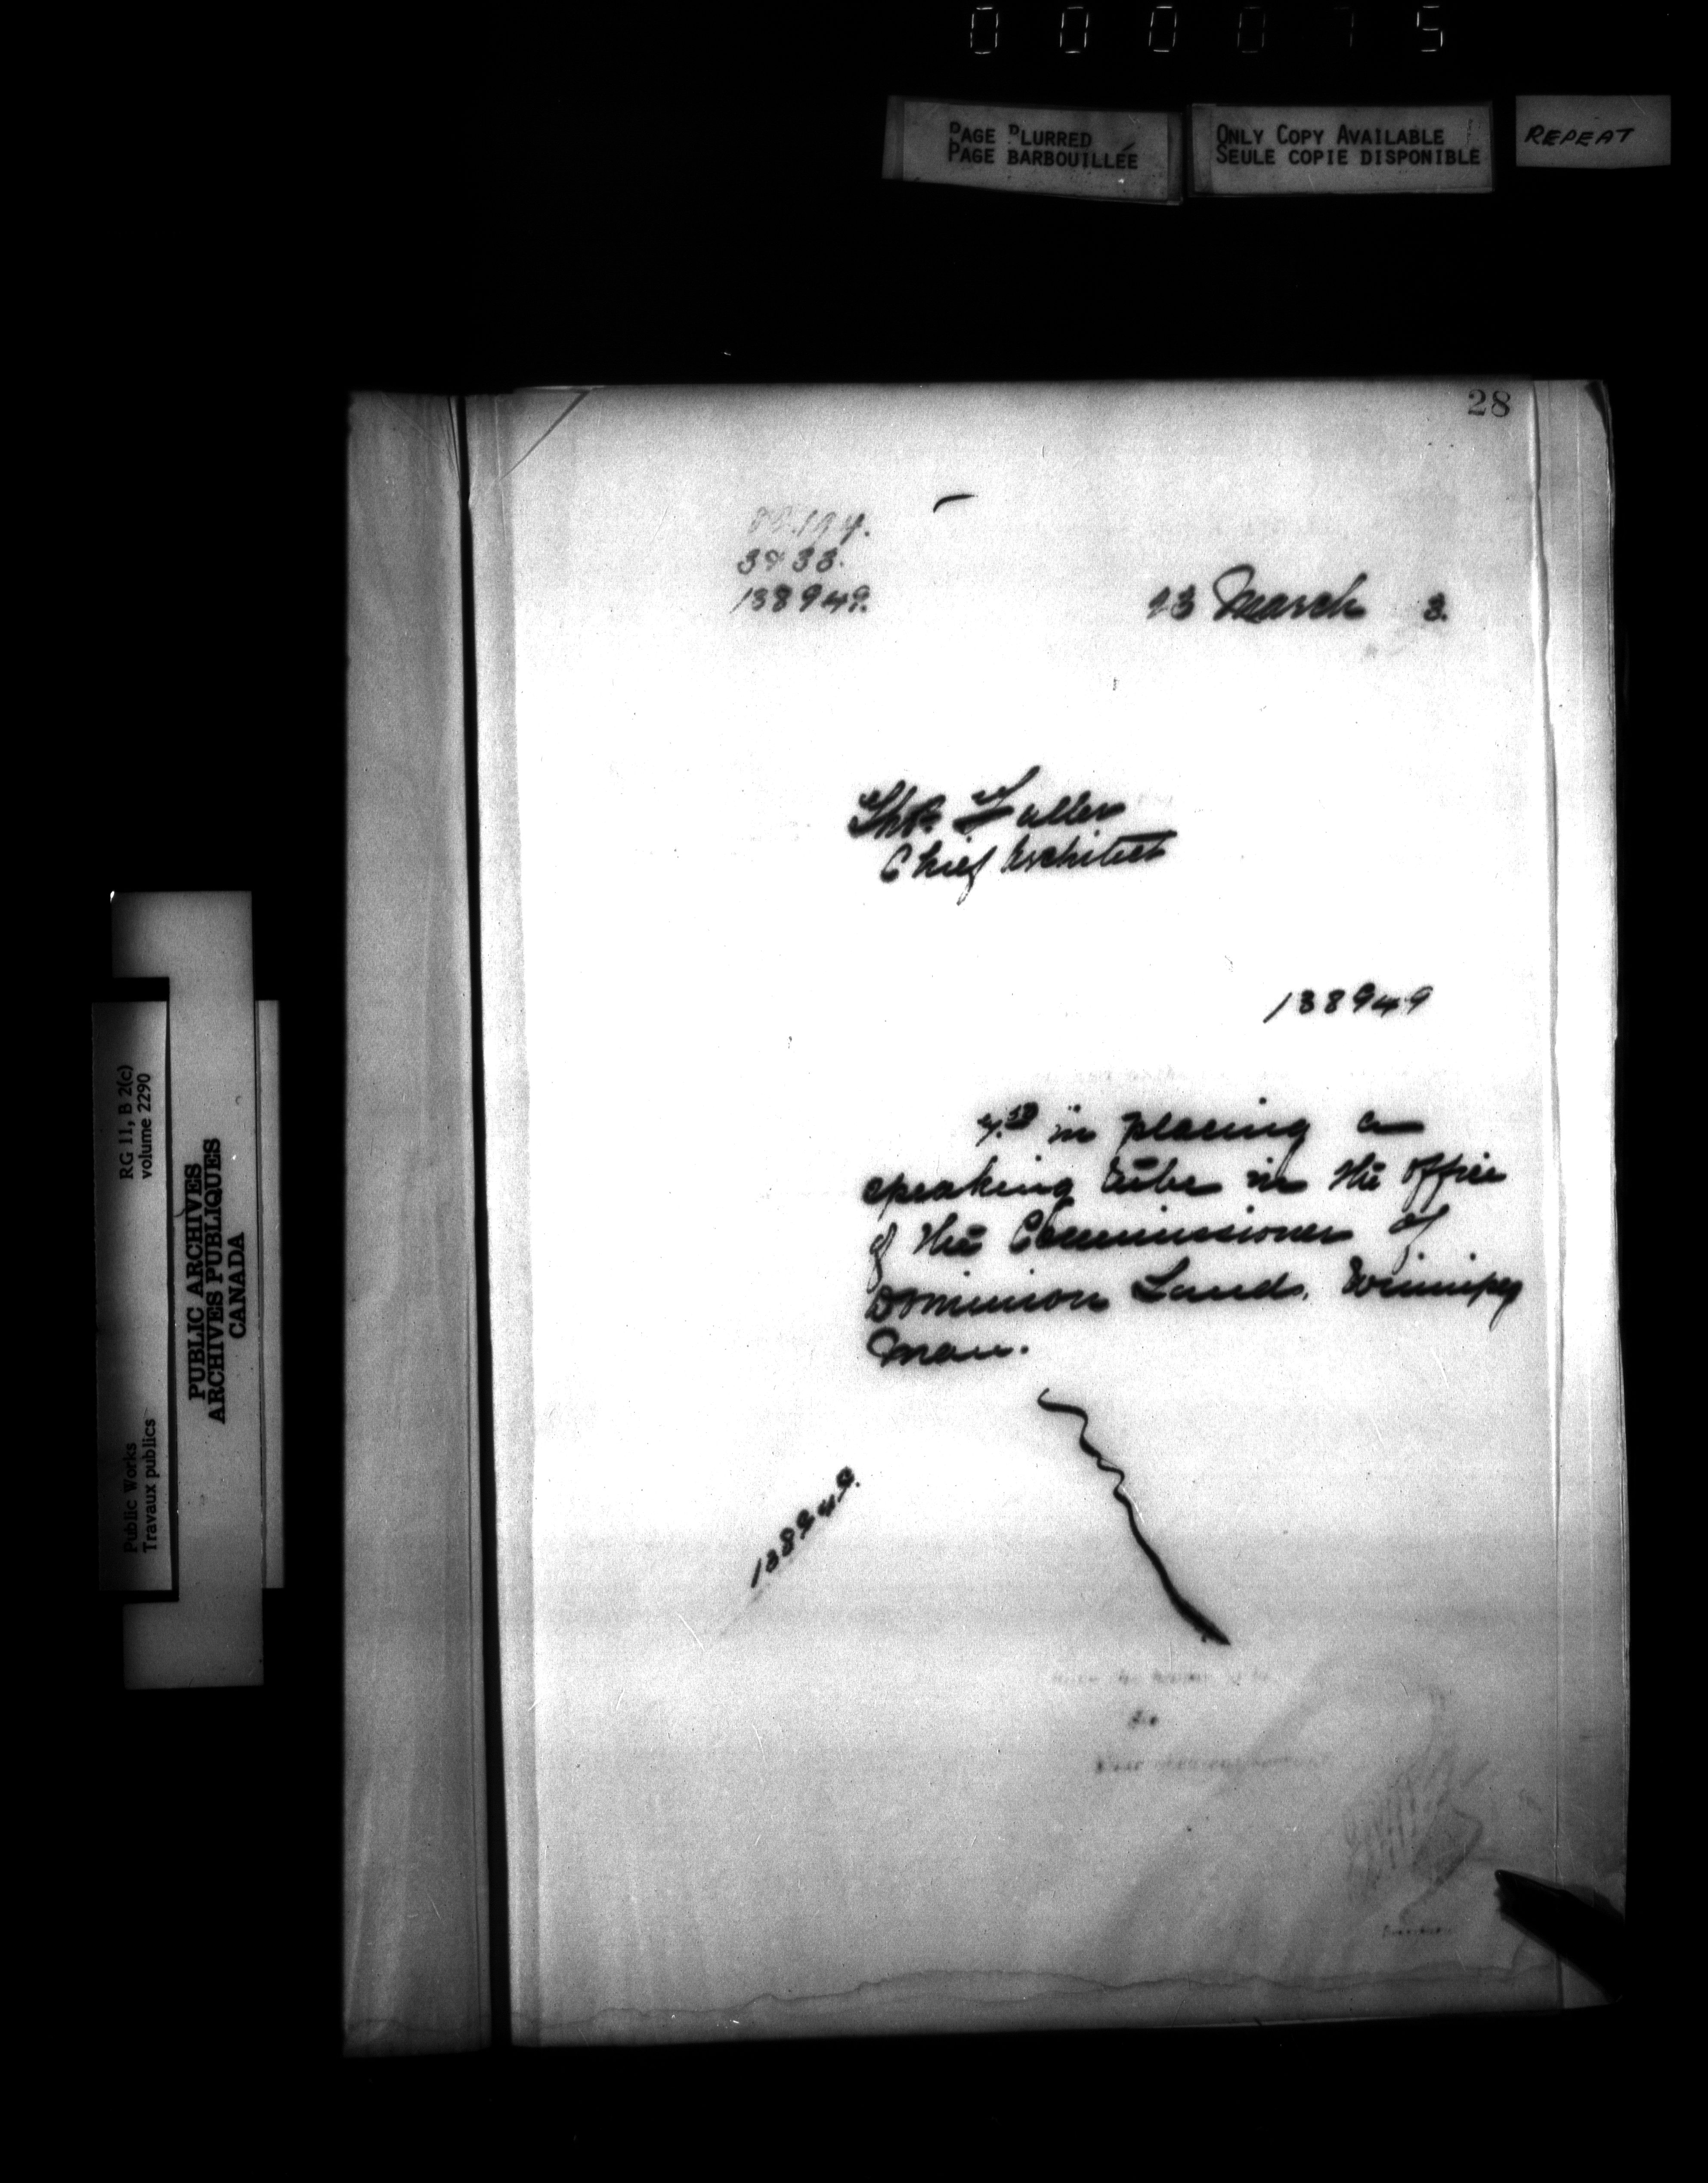 0 0 0 0 7 5
PAGE BLURRED
PAGE BARBOUILLÉE
ONLY COPY AVAILABLE
SEULE COPIE DISPONIBLE
REPEAT
28
3933.
138949.
23 March 3.
Thos Fuller
Chief Architect
138949
in placing a
speaking tube in the office
of the Commissioner of
Dominion Lands, Winnipeg
Man.
138949.
RG 11, B 2(c)
volume 2290
Public Works
Travaux publics
PUBLIC ARCHIVES
ARCHIVES PUBLIQUES
CANADA